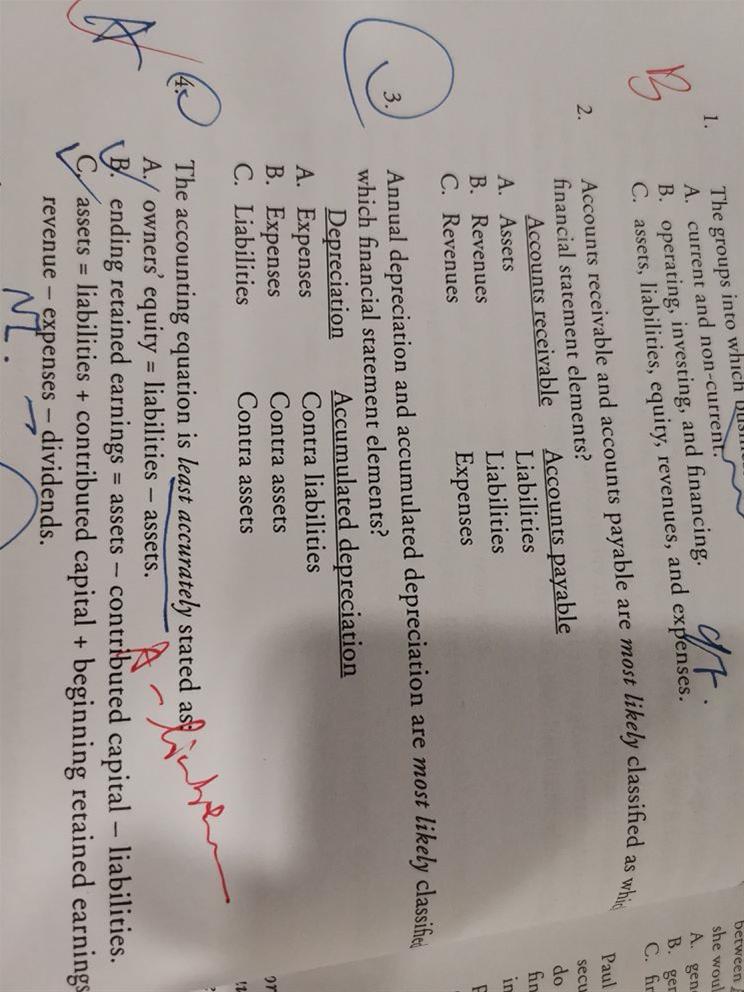 1. The groups into which
A. current and non-current.
B. operating, investing, and financing.
C. assets, liabilities, equity, revenues, and expenses.
B
2. Accounts receivable and accounts payable are most likely classified as
financial statement elements?
Accounts receivable Accounts payable
A. Assets Liabilities
B. Revenues Liabilities
C. Revenues Expenses
3. Annual depreciation and accumulated depreciation are most likely classified
which financial statement elements?
Depreciation Accumulated depreciation
A. Expenses Contra liabilities
B. Expenses Contra assets
C. Liabilities Contra assets
4. The accounting equation is least accurately stated as:
A. owners' equity = liabilities – assets.
B. ending retained earnings = assets – contributed capital – liabilities.
C. assets = liabilities + contributed capital + beginning retained earnings
revenue – expenses – dividends.
A
NI.
between
she woul
A.
B.
C.
Paul
secu
do